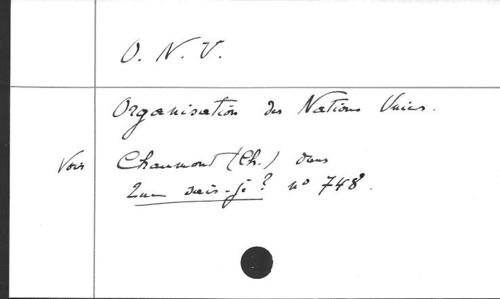 O. N. U.
Organisation des Nations Unies.
Voir Chaumont (Ch.) dans
Que sais-je? n° 748.